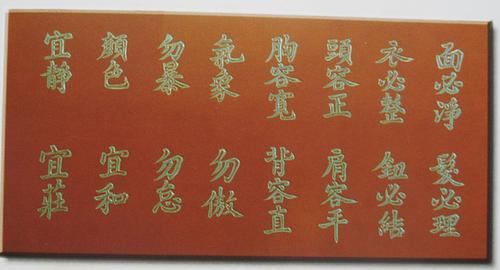 面必淨
髮必理
衣必整
鈕必結
頭容正
肩容平
胸容寬
背容直
氣象
勿傲
勿暴
勿怠
顏色
宜和
宜靜
宜莊